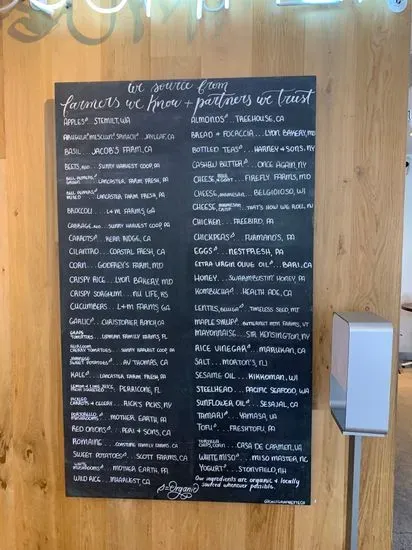 we source from
farmers we know + partners we trust
APPLES... STEMILT, WA
ARUGULA, MESCLUN, SPINACH... JAYLEAF, CA
BASIL... JACOB'S FARM, CA
BEETS, RED... SUNNY HARVEST COOP, PA
BELL PEPPERS GREEN... LANCASTER FARM FRESH, PA
BELL PEPPERS MIXED... LANCASTER FARM FRESH, PA
BROCCOLI... L+M FARMS, GA
CABBAGE, RED... SUNNY HARVEST COOP, PA
CARROTS... KERN RIDGE, CA
CILANTRO... COASTAL FRESH, CA
CORN... GODFREY'S FARM, MD
CRISPY RICE... LYON BAKERY, MD
CRISPY SORGHUM... NU LIFE, KS
CUCUMBERS... L+M FARMS, GA
GARLIC... CHRISTOPHER RANCH, CA
GRAPE TOMATOES... LIPMAN FAMILY FARMS, FL
HEIRLOOM CHERRY TOMATOES... SUNNY HARVEST COOP, PA
SWEET POTATOES... AV THOMAS, CA
KALE... LANCASTER FARM FRESH, PA
LEMON & LIME JUICE... PERRICONE, FL
PICKLED CARROTS & CELERY... RICK'S PICKS, NY
PORTOBELLO MUSHROOMS... MOTHER EARTH, PA
RED ONIONS... PERI & SONS, CA
ROMAINE... CHURCH FAMILY FARMS, CA
SWEET POTATOES... SCOTT FARMS, CA
WHITE MUSHROOMS... MOTHER EARTH, PA
WILD RICE... INHARVEST, CA
= Organic
ALMONDS... TREEHOUSE, CA
BREAD + FOCACCIA... LYON BAKERY, MD
BOTTLED TEAS... HARNEY + SONS, NY
CASHEW BUTTER... ONCE AGAIN, NY
CHEESE, & GOAT... FIREFLY FARMS, MD
CHEESE, PARMESAN... BELGIOIOSO, WI
CHEESE, PARMESAN CRISP... THAT'S HOW WE ROLL, NJ
CHICKEN... FREEBIRD, PA
CHICKPEAS... FURMANO'S, PA
EGGS... NESTFRESH, PA
EXTRA VIRGIN OLIVE OIL... BARI, CA
HONEY... SWARMBUSTIN' HONEY, PA
KOMBUCHA... HEALTH ADE, CA
LENTILS, BELUGA... TIMELESS SEED, MT
MAPLE SYRUP... BUTTERNUT MTN FARMS, VT
MAYONNAISE... SIR KENSINGTON, NY
RICE VINEGAR... MARUKAN, CA
SALT... MORTON'S, FL
SESAME OIL... KIKKOMAN, WI
STEELHEAD... PACIFIC SEAFOOD, WA
SUNFLOWER OIL... SESAJAL, CA
TAMARI... YAMASA, VA
TOFU... FRESHTOFU, PA
TORTILLA CHIPS, CORN... CASA DE CARMEN, VA
WHITE MISO... MISO MASTER, NC
YOGURT... STONYFIELD, NH
Our ingredients are organic & locally
sourced whenever possible.